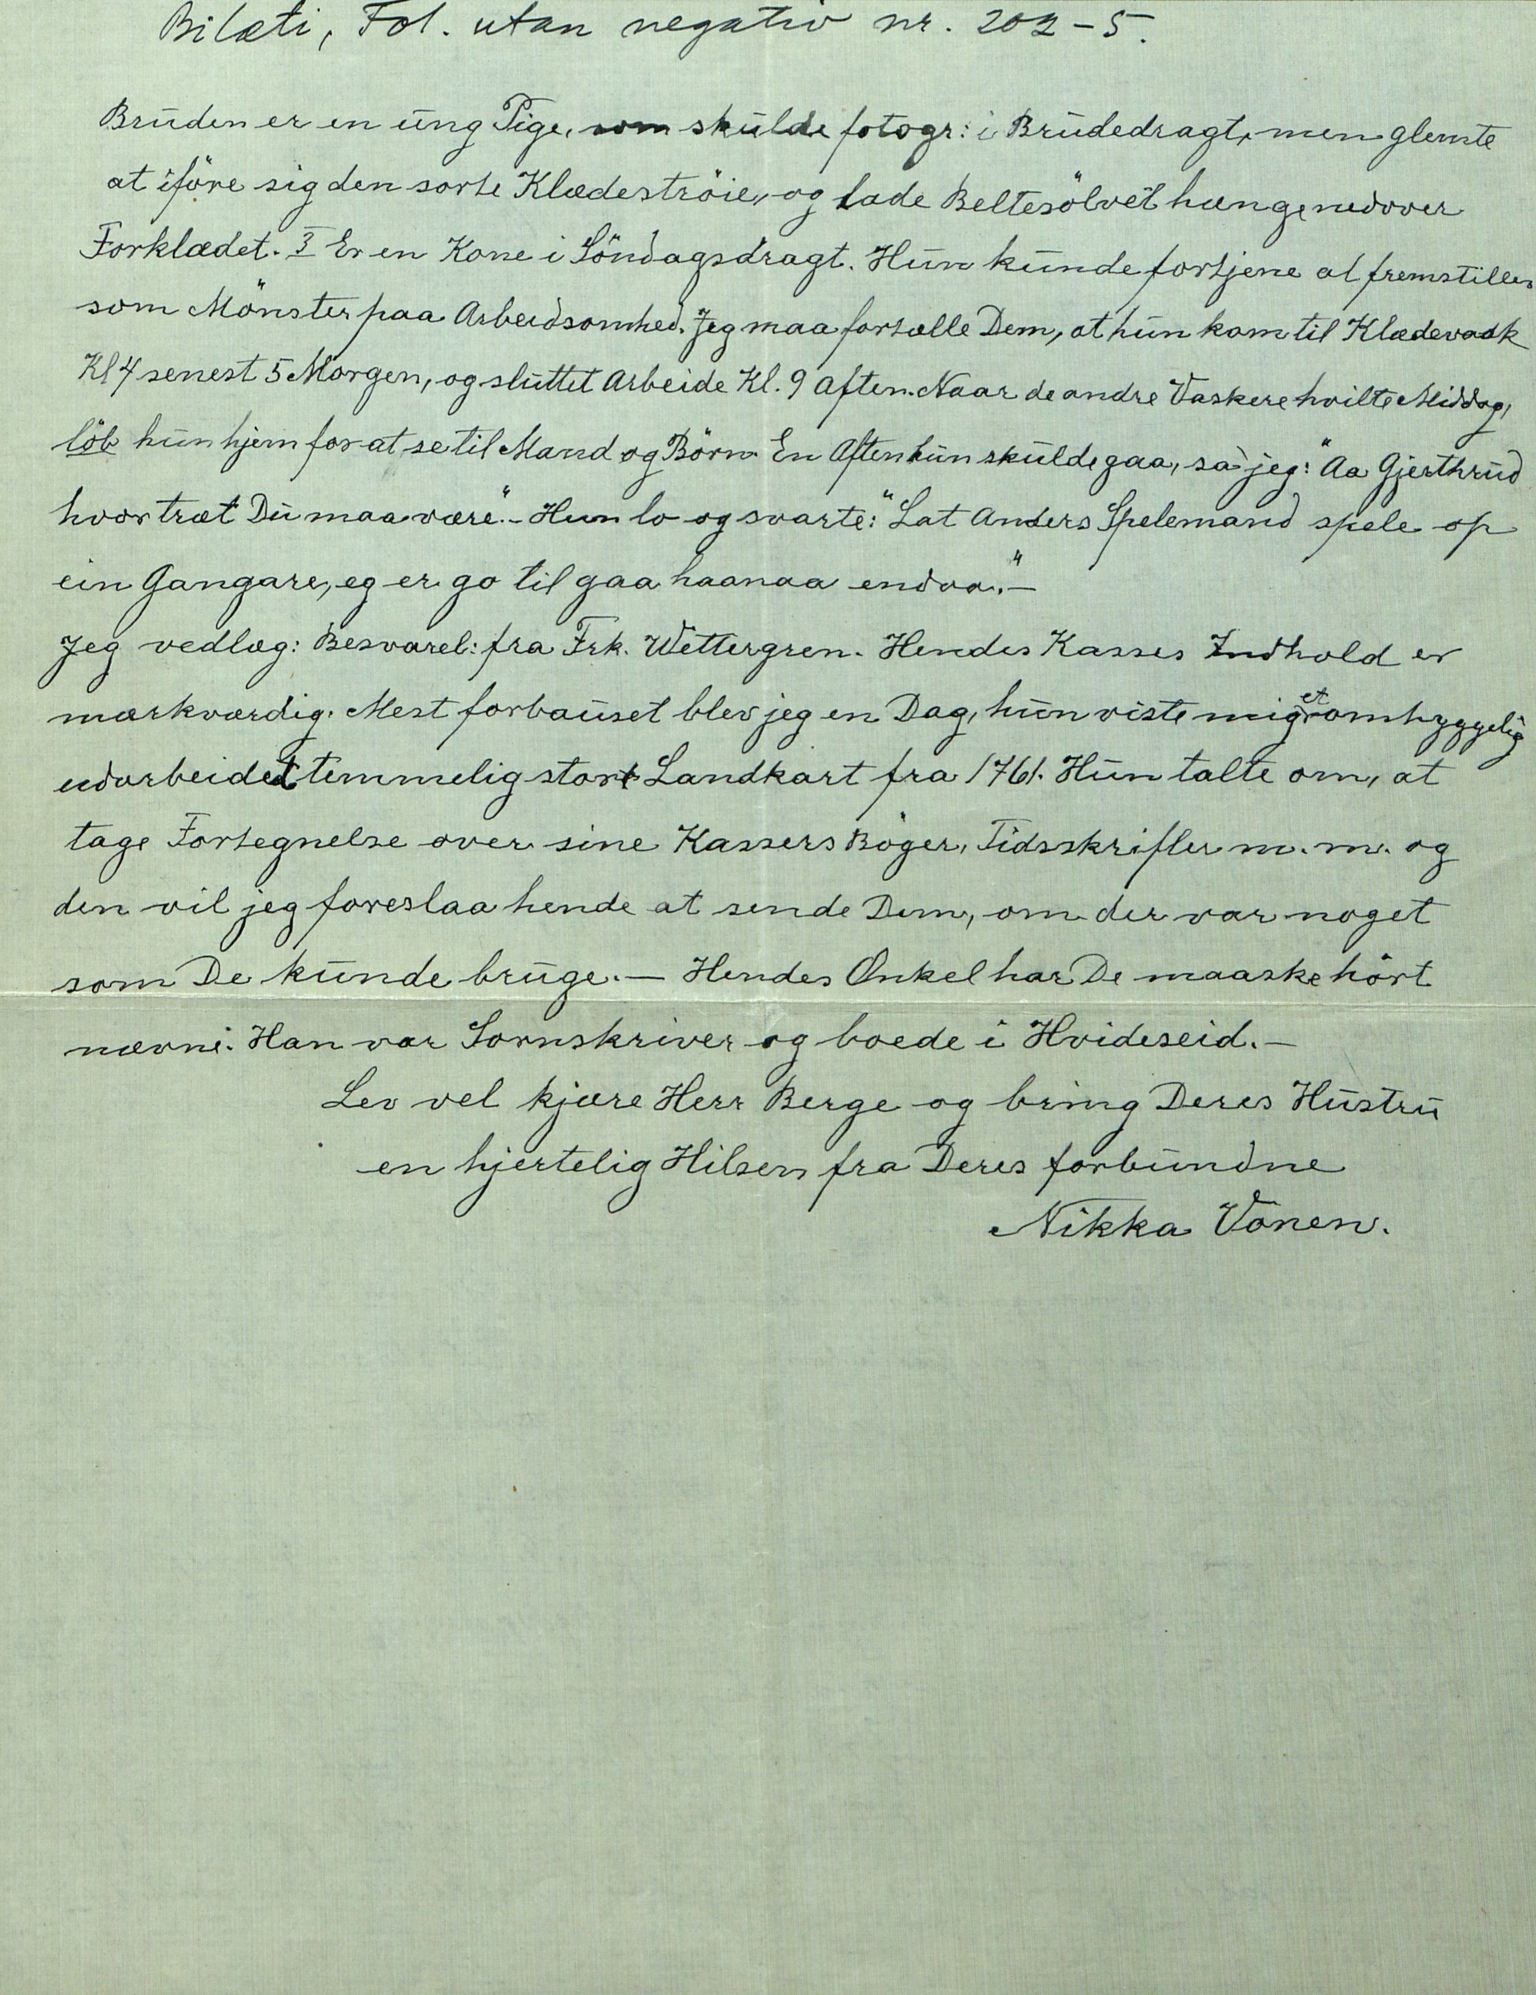 Bilæti, Fol. utan negativ nr. 202-5.
Bruden er en ung Pige, som skulde fotogr: i Brudedragt, men glemte
at iføre sig den sorte Klædestrøie, og lade Beltesølvet hænge nedover
Forklædet. 3 Er en Kone i Søndagsdragt. Hun kunde fortjene at fremstilles
som Mønster paa Arbeidsomhed. Jeg maa fortælle Dem, at hun kom til Klædevask
Kl 4 senest 5 Morgen, og sluttet Arbeide Kl. 9 Aften. Naar de andre Vaskere hvilte Middag,
løb hun hjem for at se til Mand og Børn. En Aften hun skulde gaa, sa jeg: "Aa Gjerthrud
hvor træt Du maa være". - Hun lo og svarte: "Lat Anders Spelemand spele op
ein Gangare, eg er go til gaa haanaa endaa." -
Jeg vedlæg: Besvarel: fra Frk. Wettergren. Hendes Kasses Indhold er
mærkværdig. Mest forbauset blev jeg en Dag, hun viste mig et omhyggelig
udarbeidet temmelig stort Landkart fra 1761. Hun talte om, at
tage Fortegnelse over sine Kassers Bøger, Tidsskrifter m. m. og
den vil jeg foreslaa hende at sende Dem, om der var noget
som De kunde bruge. - Hendes Onkel har De maaske hørt
nævne. Han var Sornskriver og boede i Hvideseid. -
Lev vel kjære Herr Berge og bring Deres Hustru
en hjertelig Hilsen fra Deres forbundne
Nikka Vonen.